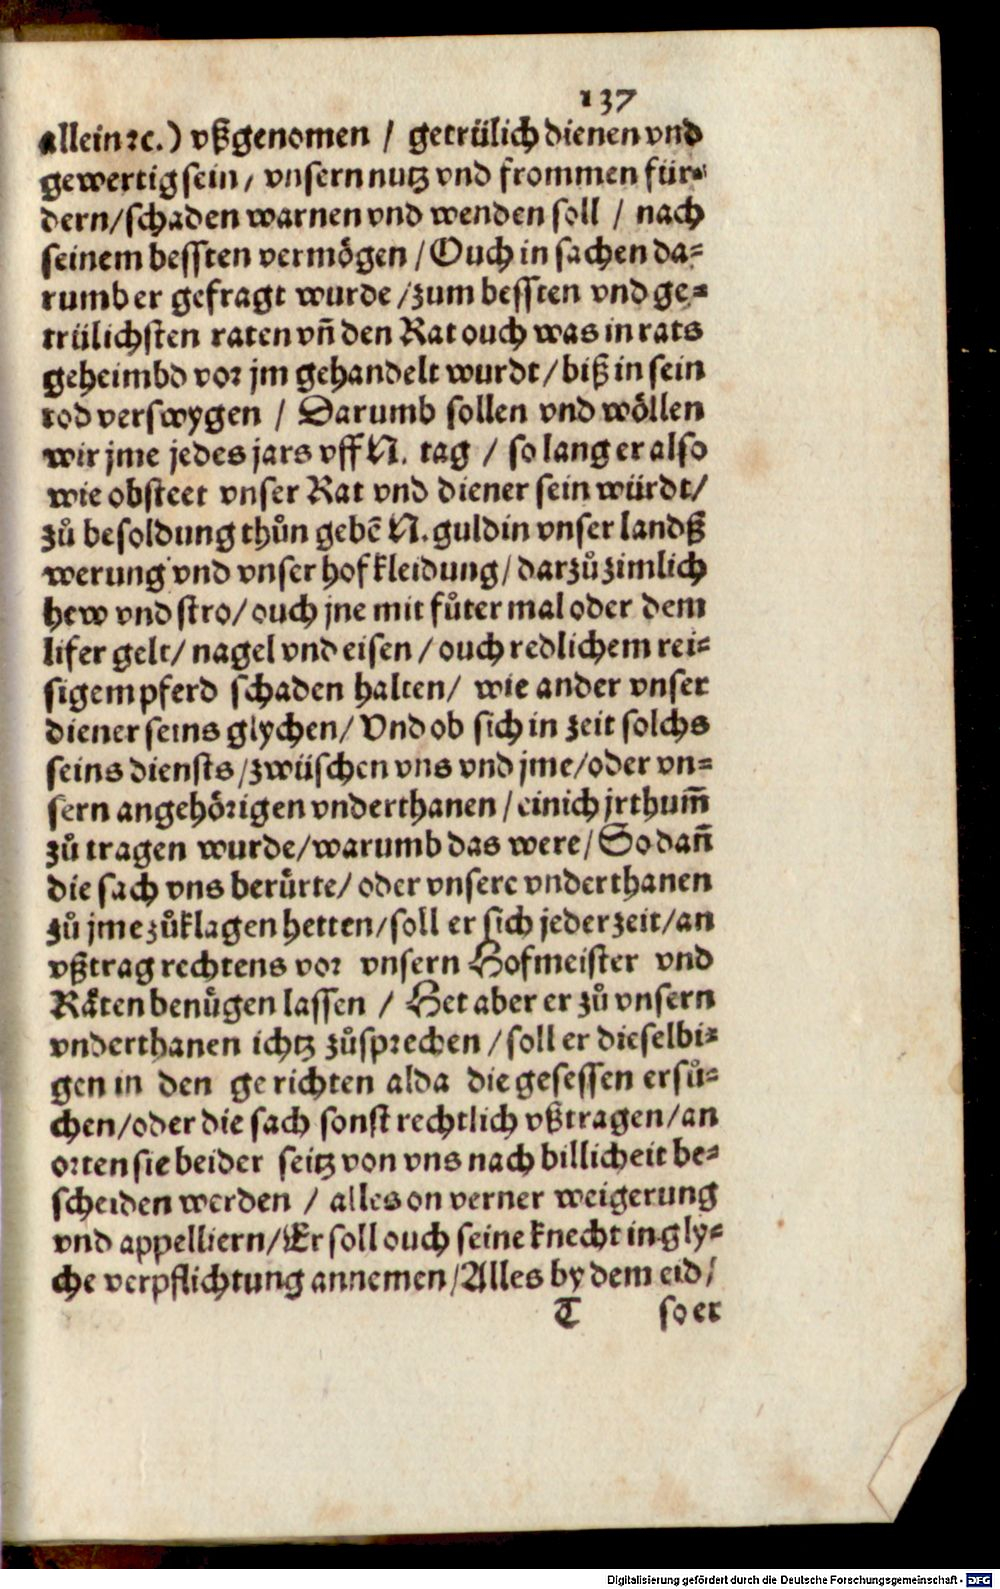 137
allein ꝛc.) vßgenomen / getrülich dienen vnd
gewertig sein / vnsern nutz vnd frommen für-
dern/schaden warnen vnd wenden soll / nach
seinem bessten vermögen / Ouch in sachen da-
rumb er gefragt wurde /zum bessten vnd ge-
trülichsten raten vñ den Rat ouch was in rats
geheimbd vor jm gehandelt wurdt/biß in sein
tod verswygen / Darumb sollen vnd wöllen
wir jme jedes jars vff N. tag / so lang er also
wie obsteet vnser Rat vnd diener sein würdt/
zů besoldung thůn gebē N. guldin vnser landß
werung vnd vnser hofkleidung/ darzů zimlich
hew vnd stro/ ouch jne mit fůter mal oder dem
lifer gelt/ nagel vnd eisen / ouch redlichem rei-
sigem pferd schaden halten/ wie ander vnser
diener seins glychen/ Vnd ob sich in zeit solchs
seins diensts /zwüschen vns vnd jme/oder vn-
sern angehörigen vnderthanen / einich jrthum̃
zů tragen wurde/warumb das were/ So dañ
die sach vns berürte/ oder vnsere vnderthanen
zů jme zůklagen hetten/soll er sich jederzeit/an
vßtrag rechtens vor vnsern Hofmeister vnd
Räten benügen lassen / Het aber er zů vnsern
vnderthanen ichtz zůsprechen /soll er dieselbi-
gen in den gerichten alda die gesessen ersů-
chen/oder die sach sonst rechtlich vßtragen/an
orten sie beider seitz von vns nach billicheit be-
scheiden werden / alles on verner weigerung
vnd appelliern/Er soll ouch seine knecht in gly-
che verpflichtung annemen/Alles by dem eid/
T so er
Digitalisierung gefördert durch die Deutsche Forschungsgemeinschaft - DFG